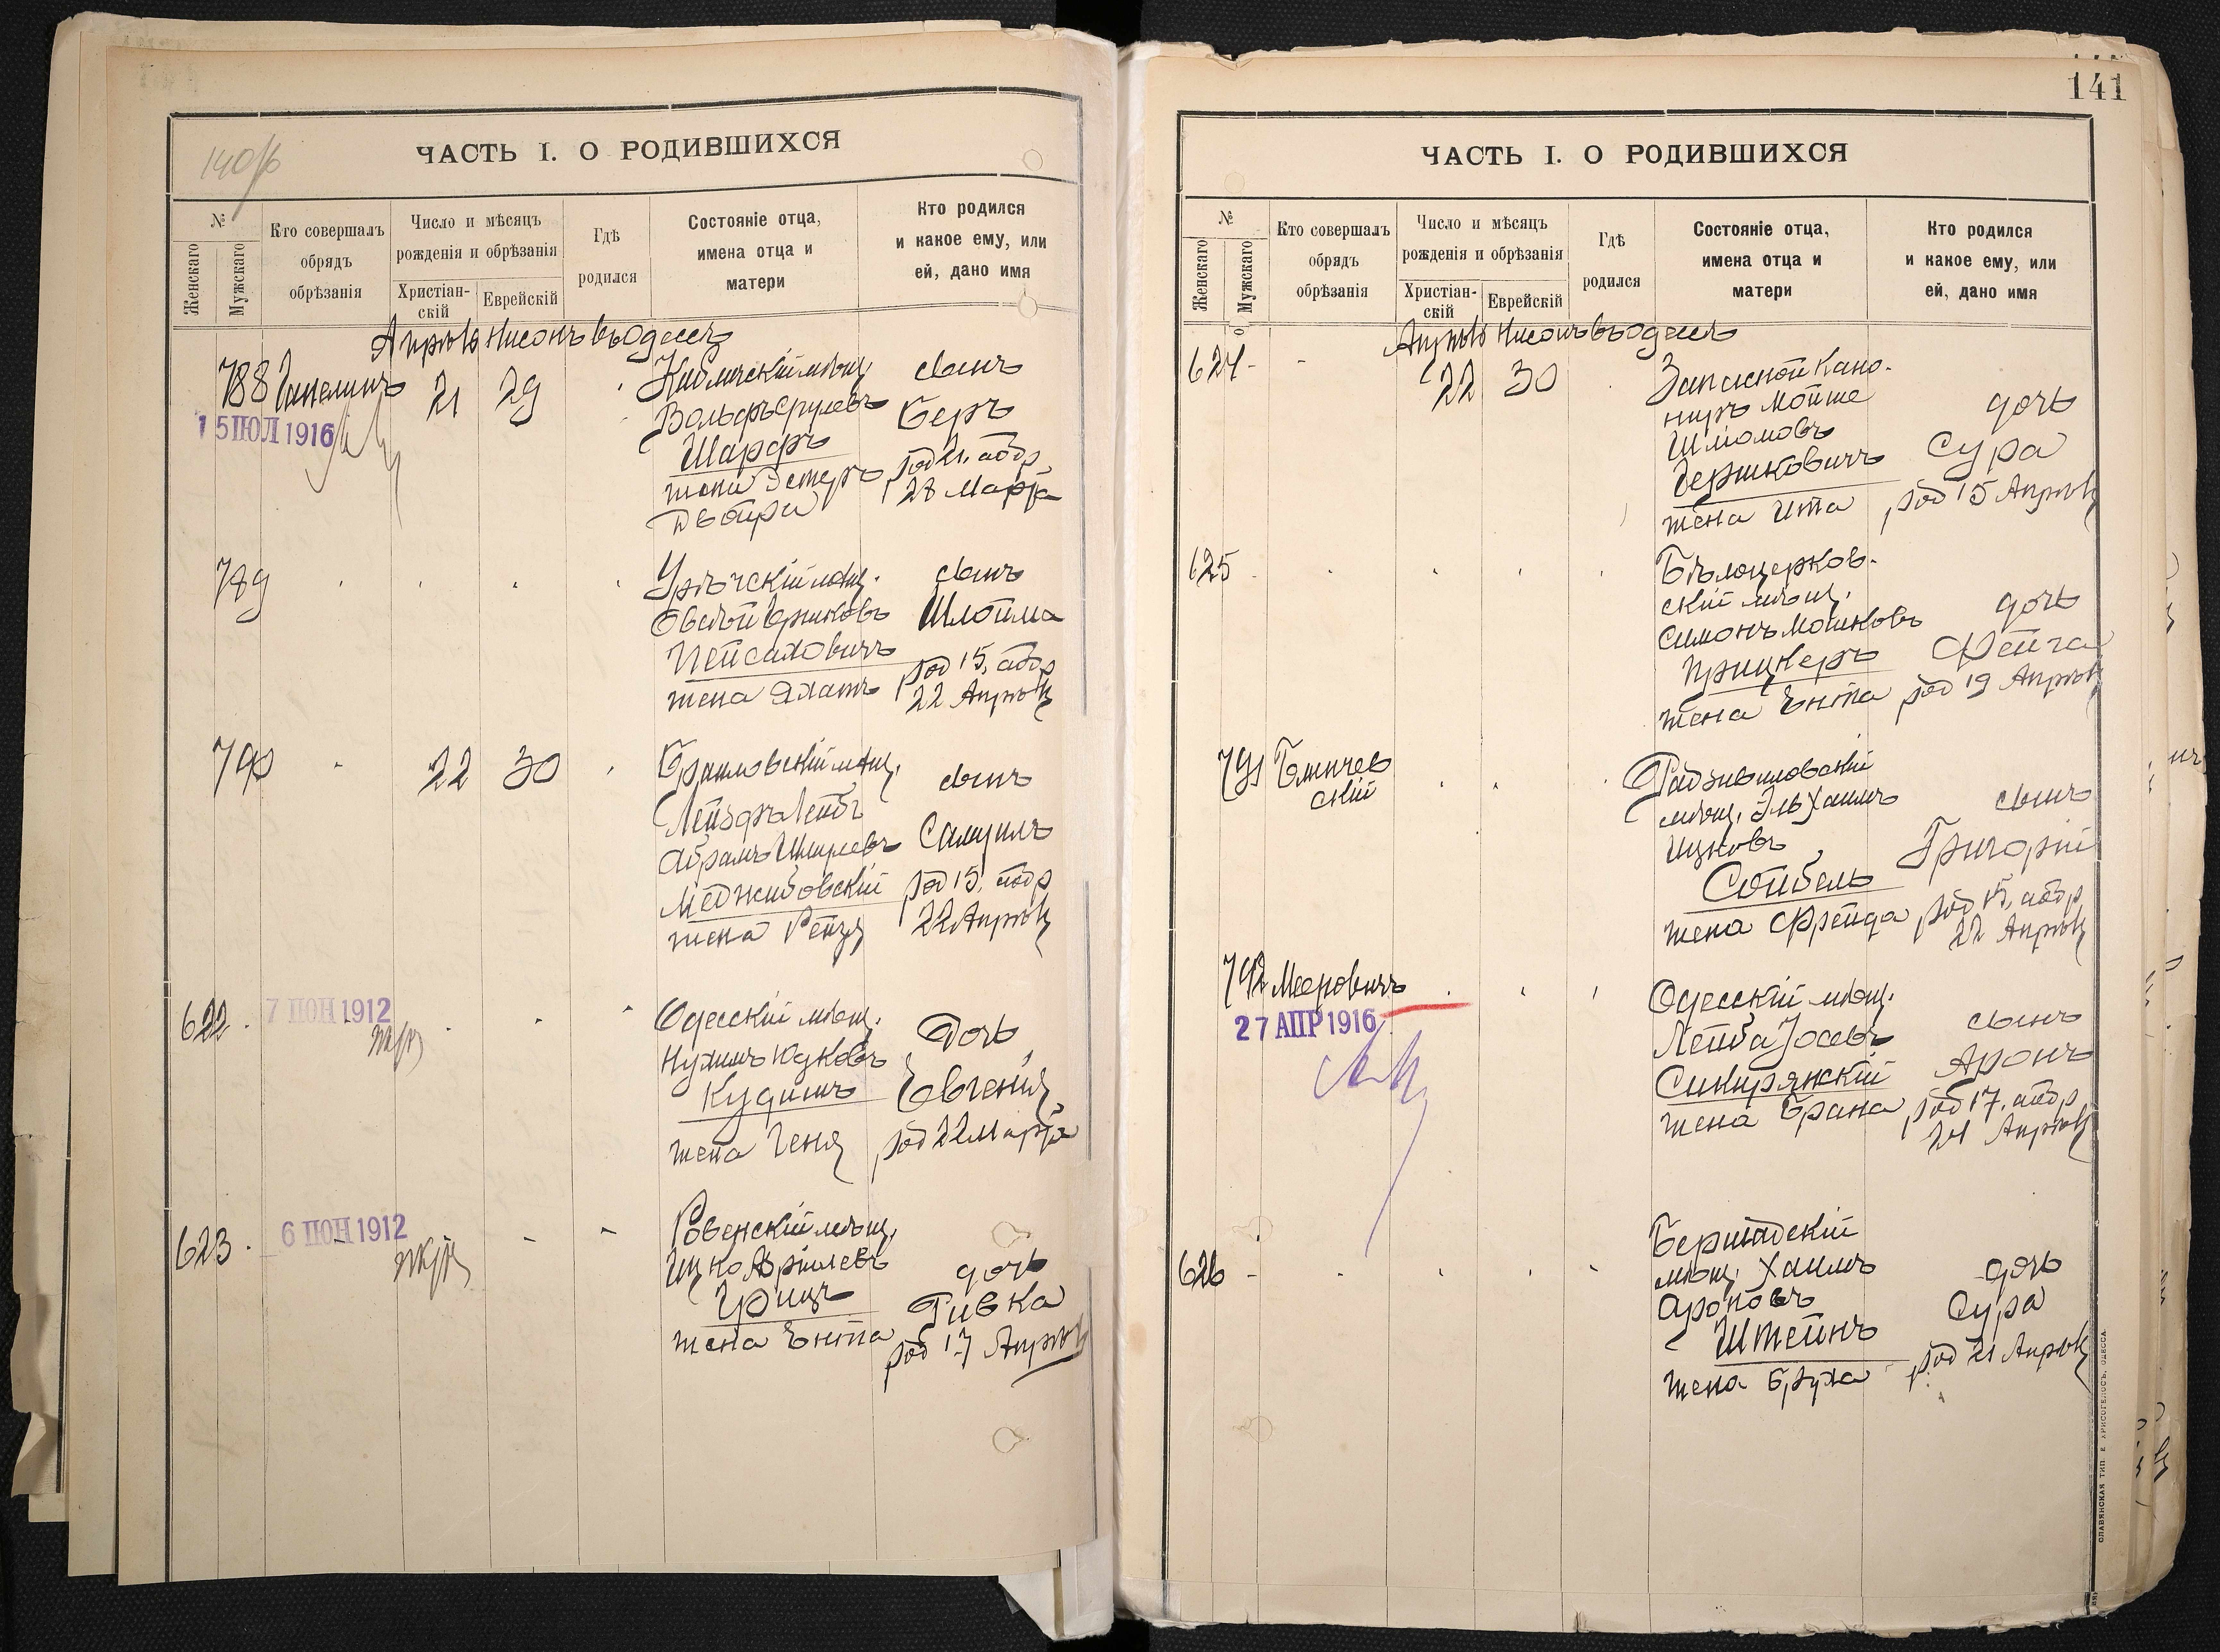 140/б
ЧАСТЬ I. О РОДИВШИХСЯ
№
Женскаго
Мужскаго
Кто совершалъ
обрядъ
обрѣзанія
Число и мѣсяцъ
рожденія и обрѣзанія
Христіан-
скій
Еврейскій
Гдѣ
родился
Состояніе отца,
имена отца и
матери
Кто родился
и какое ему, или
ей, дано имя
Апрѣль Нисонъ въ Одессѣ
788
15 ІЮЛ 1916
21 29
мѣщ.
Вольфъ Срулевъ
Шарфъ
жена Эстеръ
Двойра
сынъ
Беръ
род 21, аобр
28 Марта
789
мѣщ.
Овсѣй
Пейсаховичъ
жена
сынъ
Шлойма
род 15, аобр
22 Апрѣля
790 - 22 30
Браиловскій мѣщ.
Лейзеръ Лейбъ
Абрамъ Шмулевъ
Меджибовскій
жена Рейзя
сынъ
Самуилъ
род 15, аобр
22 Апрѣля
622
7 ІЮН 1912
Одесскій мѣщ.
Нухимъ Юдковъ
Кудишъ
жена Геня
Дочь
Евгенія
род 22 Марта
623
6 ІЮН 1912
Ровенскій мѣщ.
Ицко
Грицъ
жена Ента
дочь
Ривка
род 17 Апрѣля
141
ЧАСТЬ I. О РОДИВШИХСЯ
№
Женскаго
Мужскаго
Кто совершалъ
обрядъ
обрѣзанія
Число и мѣсяцъ
рожденія и обрѣзанія
Христіан-
скій
Еврейскій
Гдѣ
родился
Состояніе отца,
имена отца и
матери
Кто родился
и какое ему, или
ей, дано имя
Апрѣль Нисонъ въ Одессѣ
624 - 22 30
Запасной Кано-
ниръ Мойше
Шліомовъ
Гершковичъ
жена Ита
дочь
Сура
род 15 Апрѣля
625
Бѣлоцерков-
скій мѣщ.
Симонъ Мошковъ
Прицкеръ
жена Ента
дочь
Фейга
род 19 Апрѣля
791
скій
Радзивиловскій
мѣщ. Эль Хаимъ
Ицковъ
Сойбель
жена Фрейда
сынъ
Григорій
род 15, аобр
22 Апрѣля
792 Мееровичъ
27 АПР 1916
Одесскій мѣщ.
Лейба Іосевъ
Сикирянскій
жена Брана
сынъ
Аронъ
род 17, аобр
24 Апрѣля
626 -
Бершадскій
мѣщ. Хаимъ
Ароновъ
Штейнъ
жена Бруха
дочь
Сура
род 21 Апрѣля
СЛАВЯНСКАЯ ТИП. Е. ХРИСОГЕЛОСЪ, ОДЕССА.